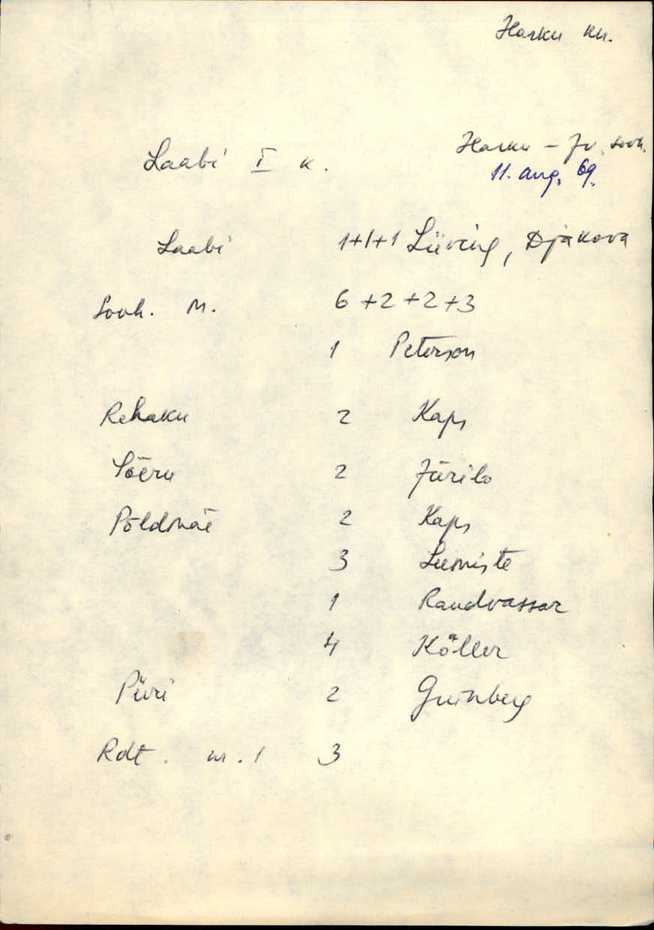 Harku kn.
Harku - Jv. sovh.
Laabi I k.
11. aug. 69.
Laabi 1+1+1 Liiving, Djakova
Sovh. m. 6+2+2+3
1 Peterson
Rehaku 2 Kaps
Sõeru 2 Järilo
Põldmäe 2 Kaps
3 Lumiste
1 Raudvassar
4 Köller
Püri 2 Grünberg
Rdt. nr. 1 3